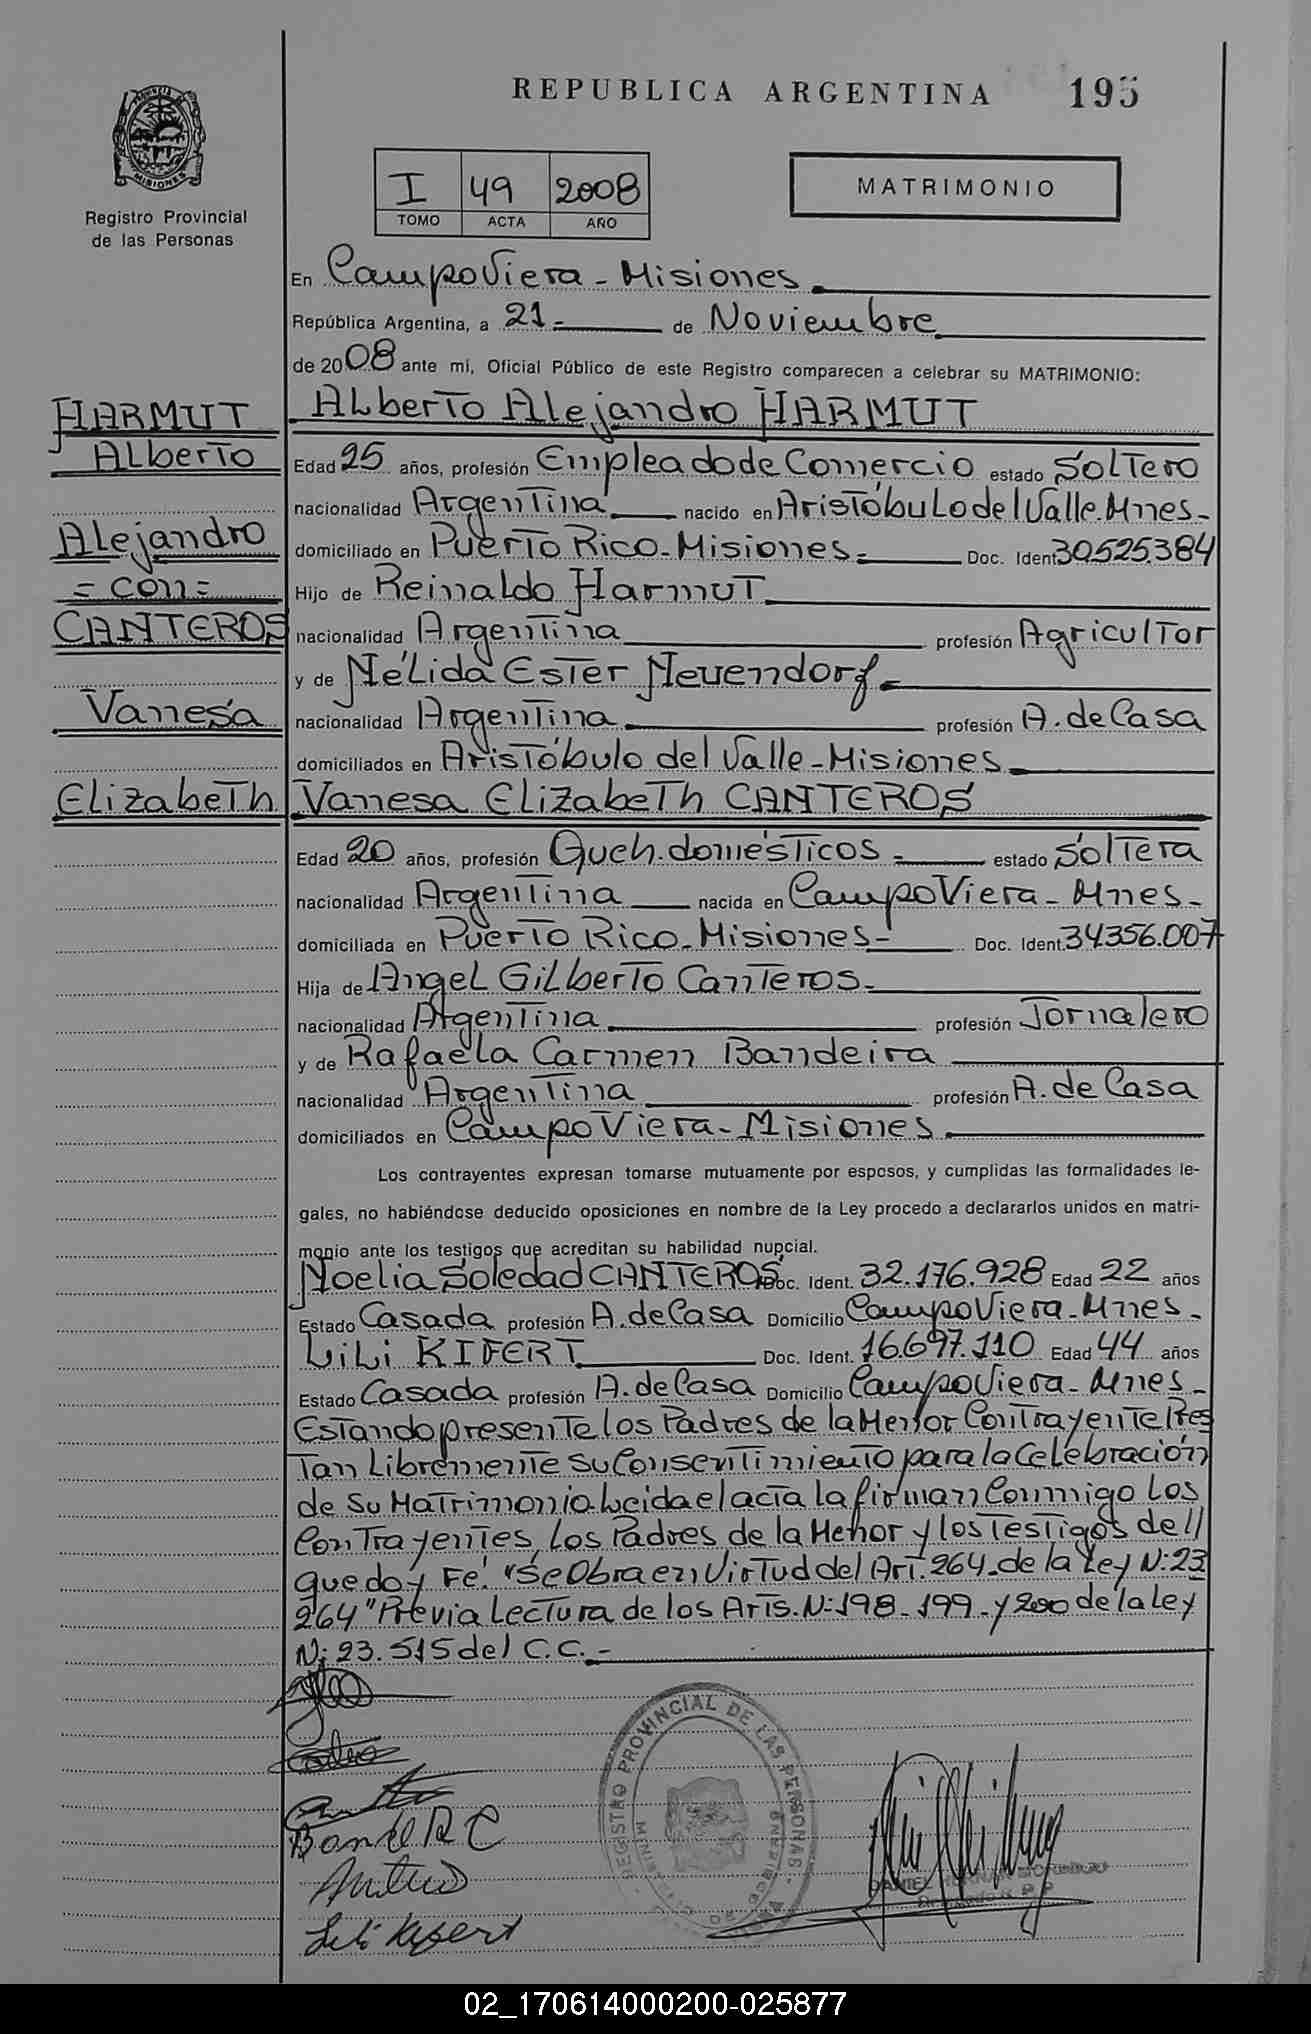 REPUBLICA ARGENTINA 195
PROVINCIA DE MISIONES
Registro Provincial
de las Personas
I 49 2008
TOMO ACTA AÑO
MATRIMONIO
En Campo Viera - Misiones
República Argentina, a 21 de Noviembre
de 2008 ante mi, Oficial Público de este Registro comparecen a celebrar su MATRIMONIO:
HARMUT
Alberto
Alejandro
= con =
CANTEROS
Vanesa
Elizabeth
Alberto Alejandro HARMUT
Edad 25 años, profesión Empleado de Comercio estado Soltero
nacionalidad Argentina nacido en Aristóbulo del Valle. Mnes-
domiciliado en Puerto Rico - Misiones- Doc. Ident. 30.525.384
Hijo de Reinaldo Harmut
nacionalidad Argentina profesión Agricultor
y de Nélida Ester Neuendorf.
nacionalidad Argentina profesión A. de Casa
domiciliados en Aristóbulo del Valle - Misiones
Vanesa Elizabeth CANTEROS
Edad 20 años, profesión Queh. domésticos - estado Soltera
nacionalidad Argentina nacida en Campo Viera - Mnes-
domiciliada en Puerto Rico - Misiones- Doc. Ident. 34.356.007
Hija de Angel Gilberto Canteros-
nacionalidad Argentina profesión Jornalero
y de Rafaela Carmen Bandeira
nacionalidad Argentina profesión A. de Casa
domiciliados en Campo Viera - Misiones
Los contrayentes expresan tomarse mutuamente por esposos, y cumplidas las formalidades le-
gales, no habiéndose deducido oposiciones en nombre de la Ley procedo a declararlos unidos en matri-
monio ante los testigos que acreditan su habilidad nupcial.
Noelia Soledad CANTEROS Doc. Ident. 32.176.928 Edad 22 años
Estado Casada profesión A. de Casa Domicilio Campo Viera - Mnes-
LiLi KIFERT Doc. Ident. 16.697.110 Edad 44 años
Estado Casada profesión A. de Casa Domicilio Campo Viera - Mnes-
Estando presente los Padres de la Menor Contrayente Pres
tan Libremente su Consentimiento para la Celebración
de su Matrimonio. Leida el acta la firman Conmigo los
Contrayentes, los Padres de la Menor y los Testigos de ll
que doy Fé. "Se Obra en Virtud del Art. 264 de la Ley N: 23
264" Previa Lectura de los Arts. N: 198 - 199 - y 200 de la Ley
N: 23.515 del C.C.-
REGISTRO PROVINCIAL DE LAS PERSONAS
Lili Kifert
02_170614000200-025877